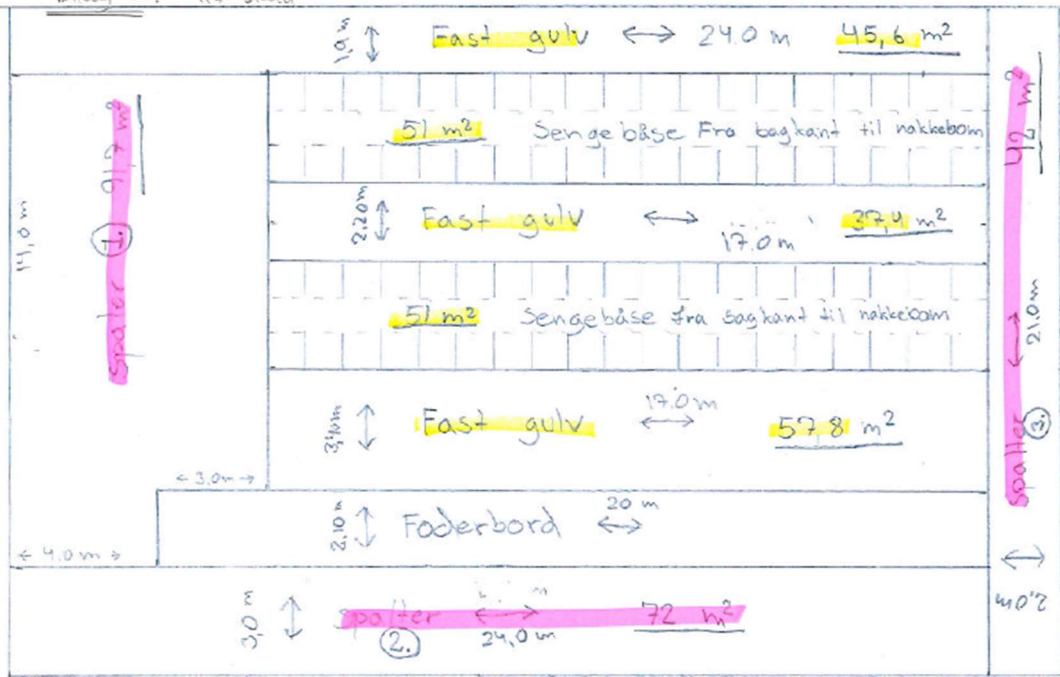 1,9 m
Fast gulv ↔ 24.0 m 45,6 m²
51 m² Sengebåse Fra bagkant til nakkebom
2.20m
Fast gulv ↔ 17.0m 37,4 m²
51 m² Sengebåse fra bagkant til nakkebom
3,40m
Fast gulv ↔ 17.0 m 57,8 m²
← 3.0m →
2,10 m
Foderbord 20 m ↔
← 4.0 m →
3,0 m
spalter ↔ 72 m²
2. 24,0 m
14,0 m
Spalter 1. 91,7 m²
spalter ↔ 42 m²
3. 21.0m
2,0m